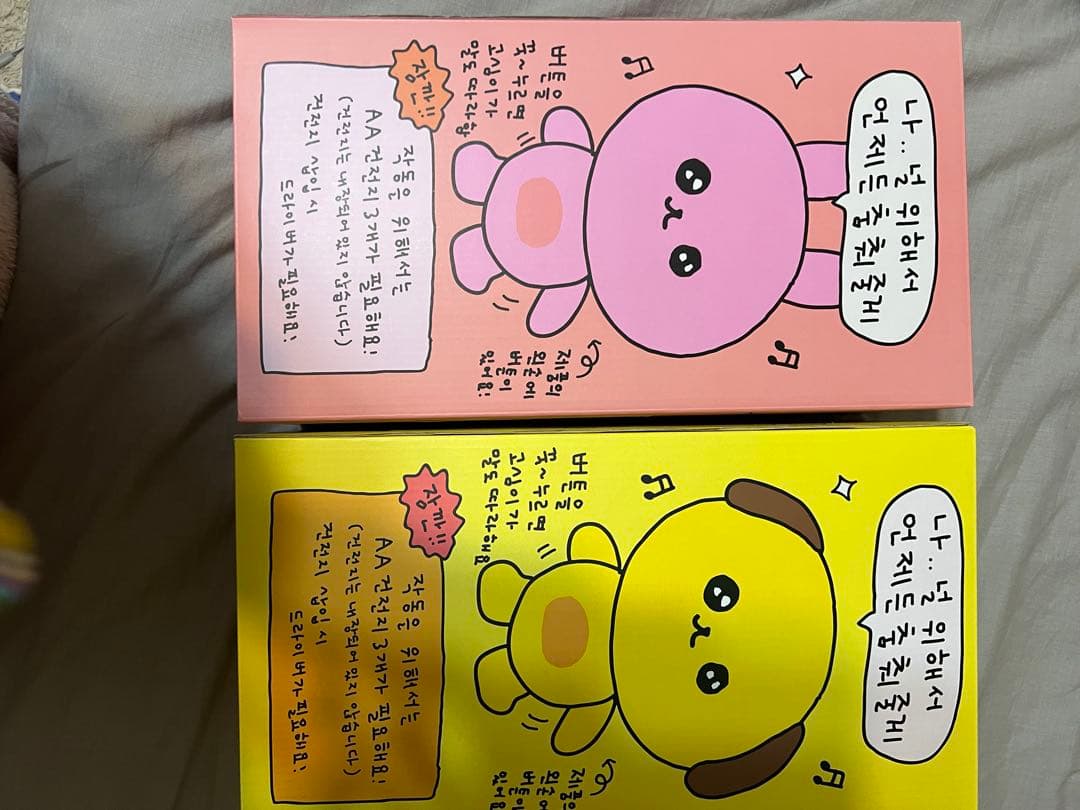 나.. 널 위해서
언제든 춤춰줄게
버튼을
꾹~누르면
고심이가
말도 따라함
제품의
왼손에
버튼이
있어요!
잠깐!!
작동을 위해서는
AA 건전지 3개가 필요해요!
(건전지는 내장되어 있지 않습니다)
건전지 삽입 시
드라이버가 필요해요!
나.. 널 위해서
언제든 춤춰줄게
버튼을
꾹~누르면
고심이가
말도 따라해요
제품의
왼손에
버튼이
있어요!
잠깐!!
작동을 위해서는
AA 건전지 3개가 필요해요!
(건전지는 내장되어 있지 않습니다)
건전지 삽입 시
드라이버가 필요해요!